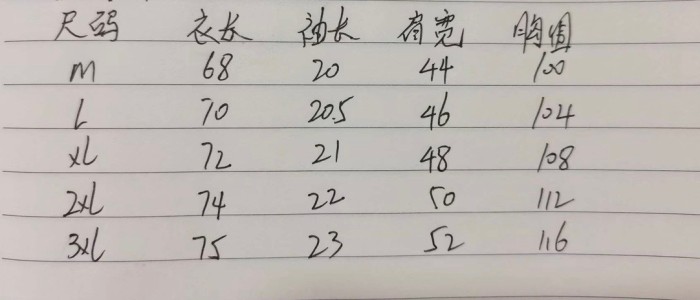 尺码 衣长 袖长 肩宽 胸围
M 68 20 44 100
L 70 20.5 46 104
XL 72 21 48 108
2XL 74 22 50 112
3XL 75 23 52 116